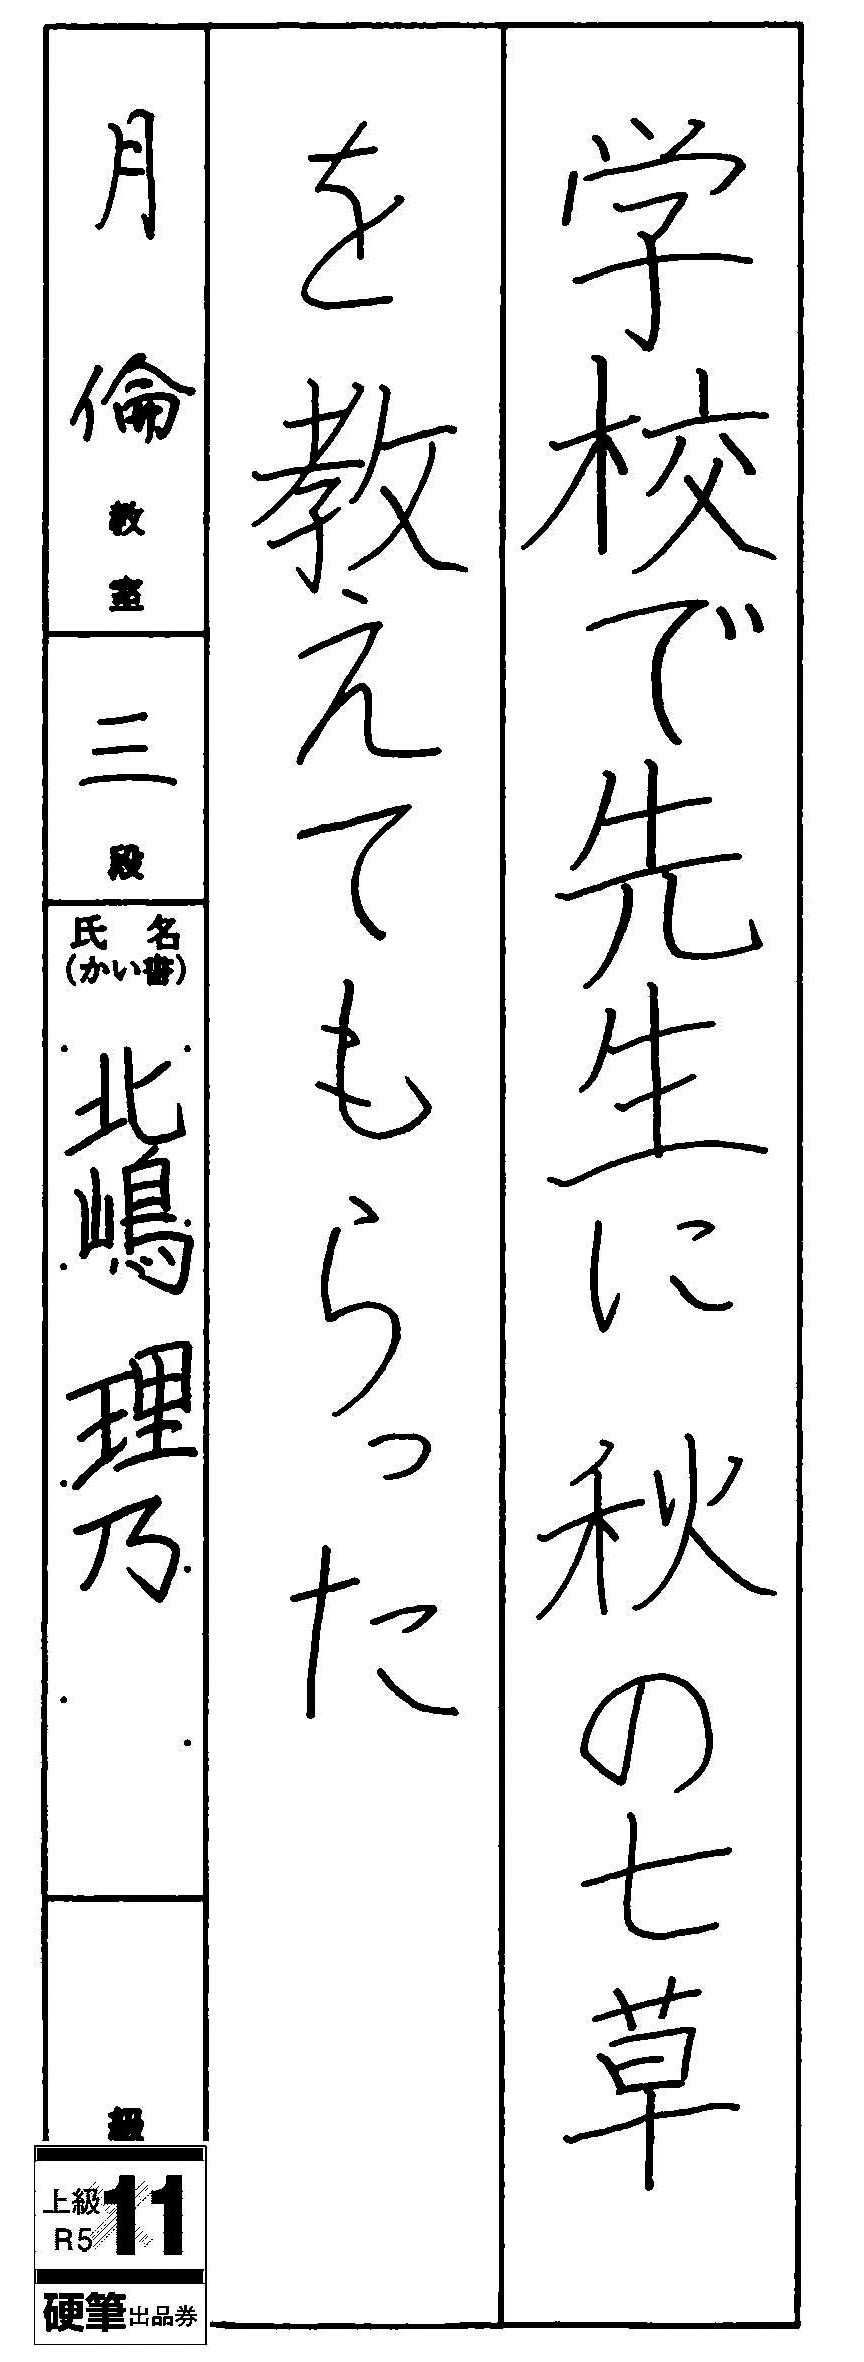 学校で先生に秋の七草
を教えてもらった
月倫教室
三段
氏名
(かい書)
北嶋理乃
級
上級
R5
11
硬筆出品券